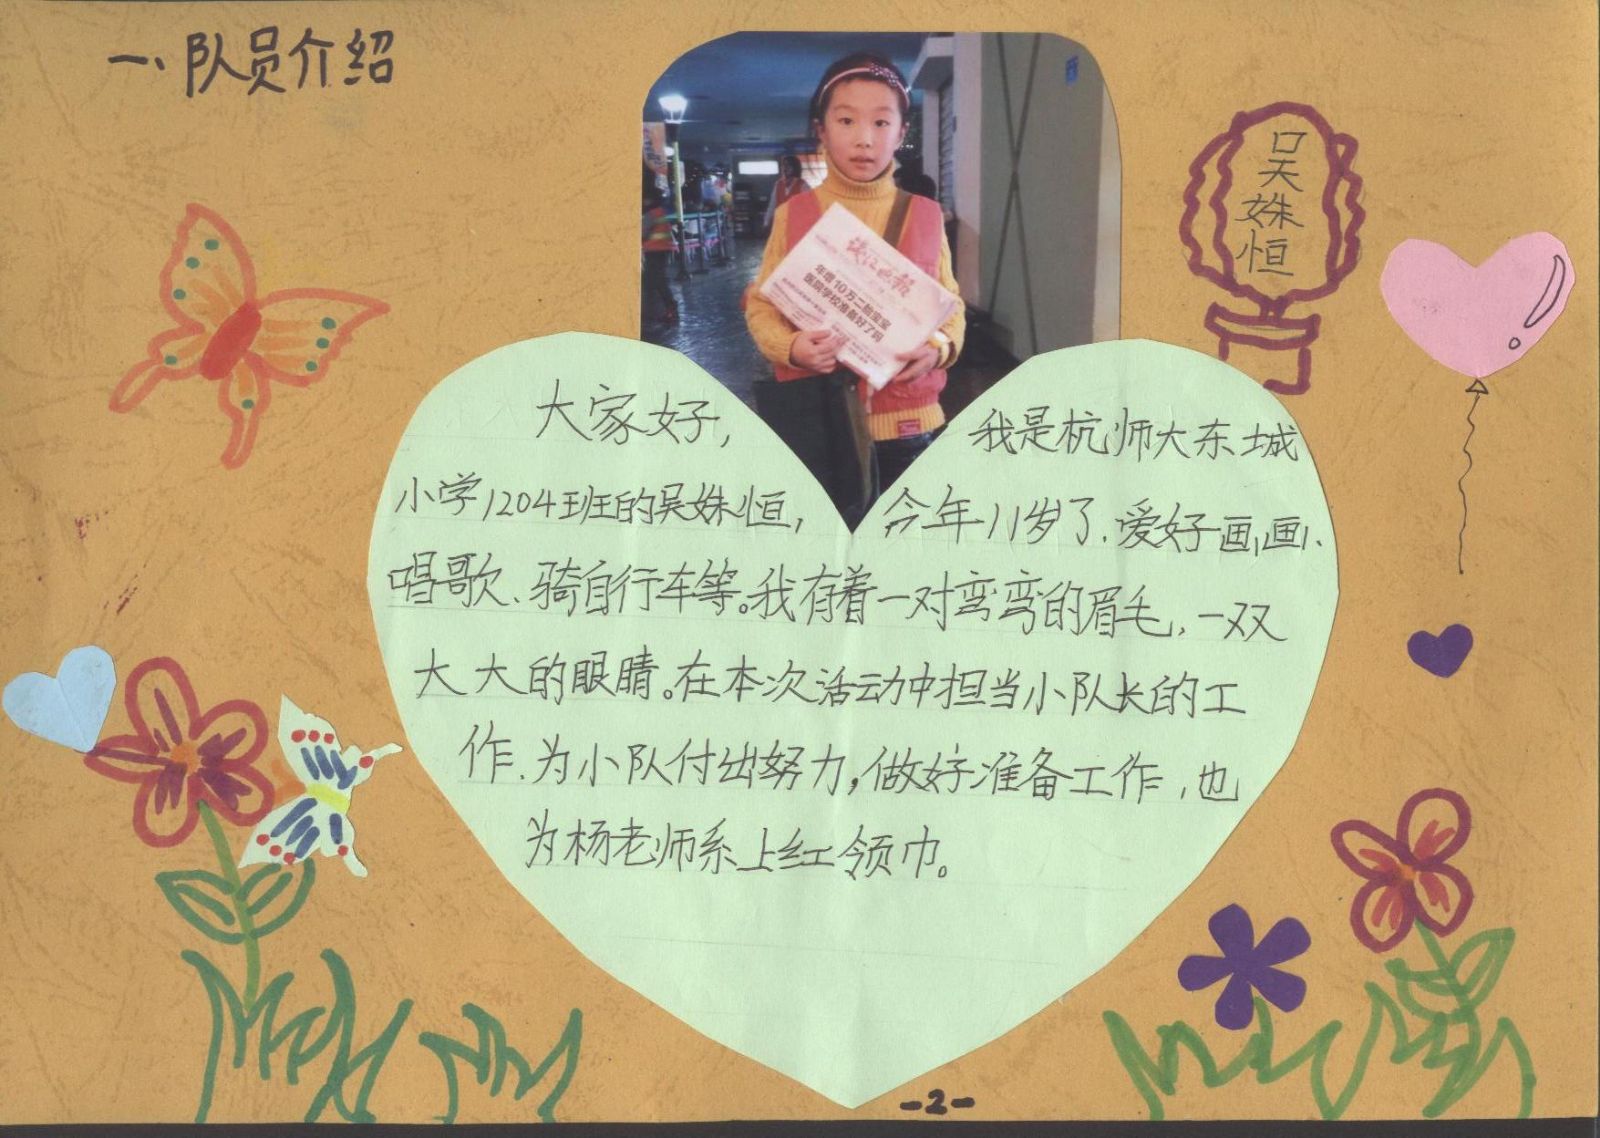 一、队员介绍
吴
姝
恒
钱江晚报
年增10万二胎宝宝
医院学校准备好了吗
大家好， 我是杭师大东城
小学1204班的吴姝恒， 今年11岁了.爱好画画、
唱歌、骑自行车等。我有着一对弯弯的眉毛，一双
大大的眼睛。在本次活动中担当小队长的工
作.为小队付出努力，做好准备工作，也
为杨老师系上红领巾。
-2-